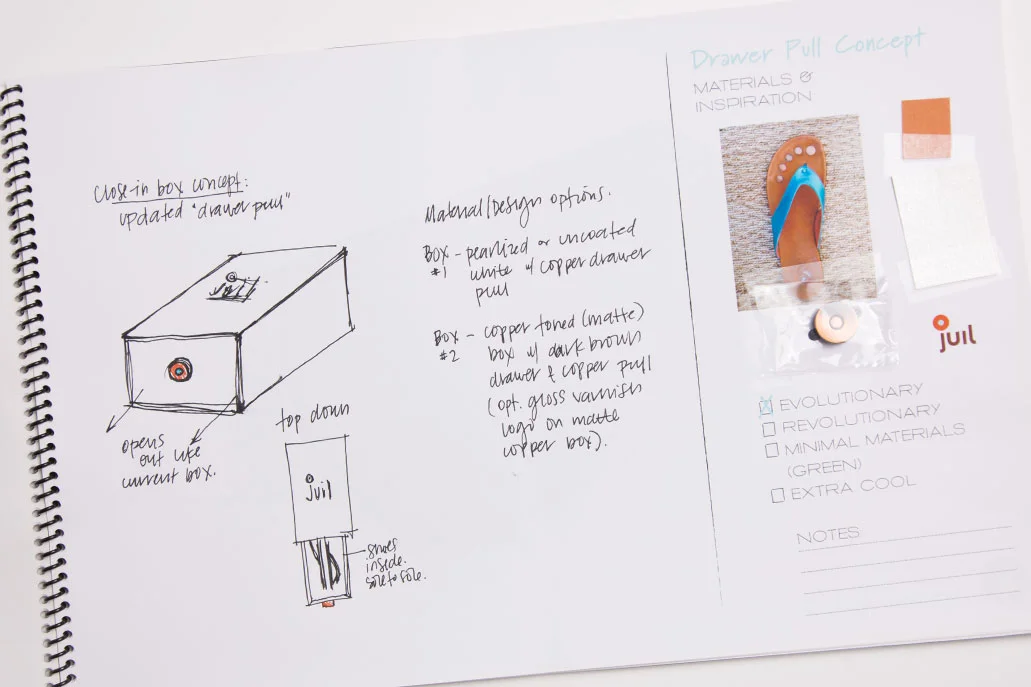 Close-in box concept:
updated "drawer pull"
juil
opens
out like
current box.
top down
juil
shoes
inside.
sole to sole.
Material/Design options.
Box - pearlized or uncoated
#1 white w/ copper drawer
pull
Box - copper toned (matte)
#2 box w/ dark brown
drawer & copper pull
(opt. gloss varnish
logo on matte
copper box).
Drawer Pull Concept
MATERIALS &
INSPIRATION
juil
EVOLUTIONARY
REVOLUTIONARY
MINIMAL MATERIALS
(GREEN)
EXTRA COOL
NOTES